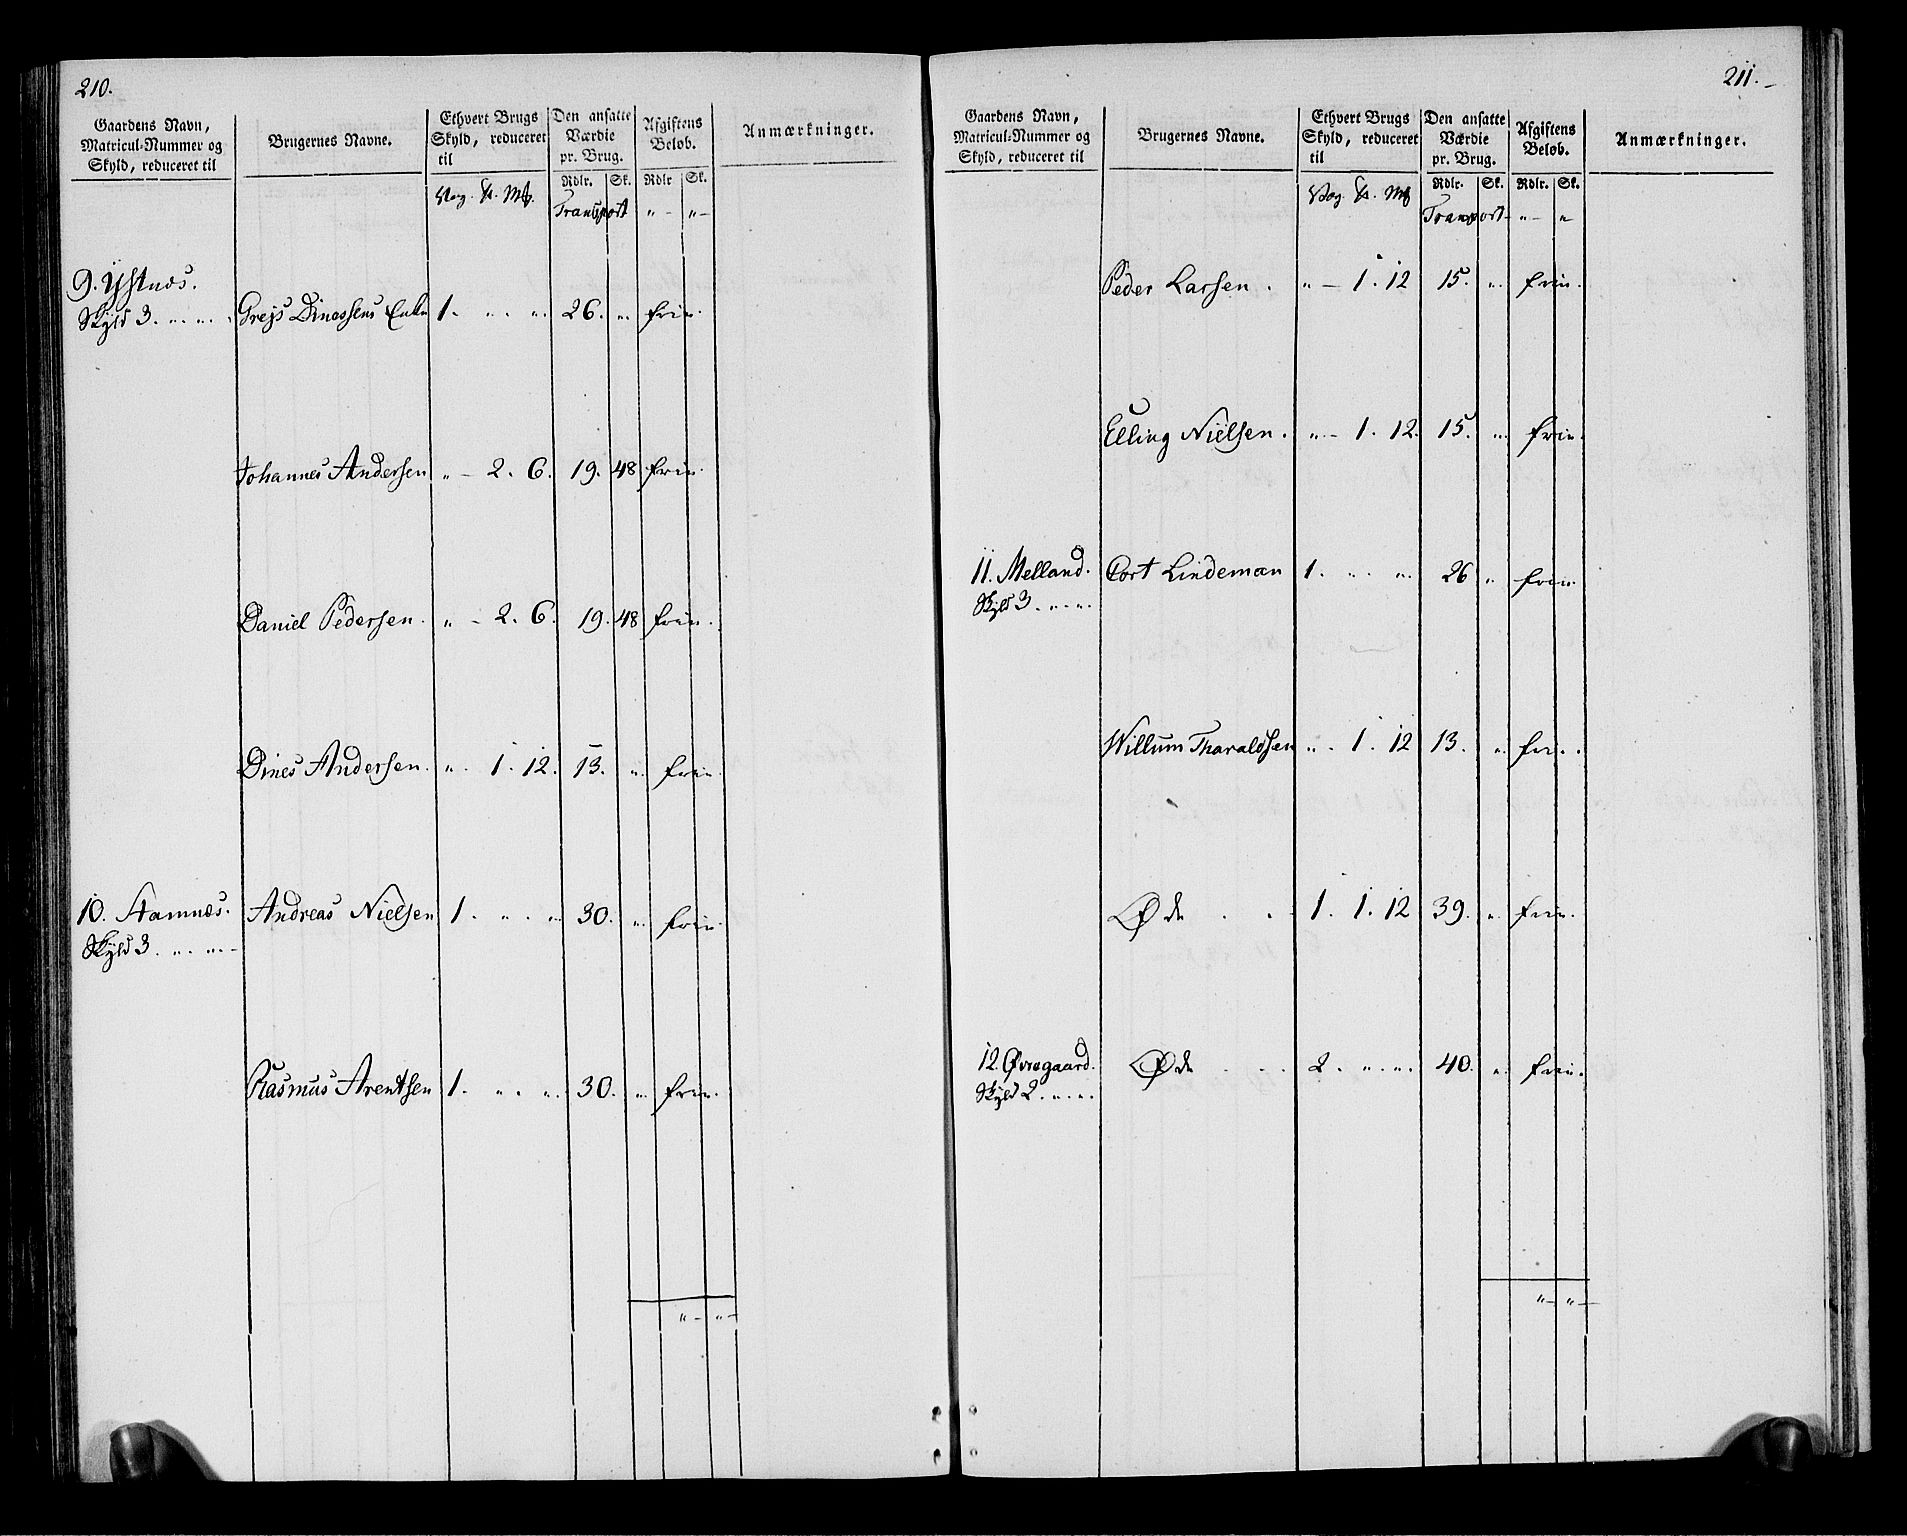 210.
Gaardens Navn, Matricul-Nummer og Skyld, reduceret til
Brugernes Navne.
Ethvert Brugs Skyld, reduceret til
Den ansatte Værdie pr. Brug.
Afgiftens Beløb.
Anmærkninger.
Rdlr. Sk. Rdlr Sk.
Vog. Mk.
Transport " - " -
9. Ystnæs.
Skyld 3. " . " . Grejs Dinessens Enke 1. " . " . 26. " . frie.
Johannes Andersen " - 2. 6. 19. 48 frie.
Daniel Pedersen. " - 2. 6. 19. 48 frie.
Dines Andersen. " . 1. 12. 13. " . frie.
10. Hamnæs. Andreas Nielsen 1. " . " . 30. " . frie.
Skyld 3. " . " . -
Rasmus Arentsen 1. " . " . 30. " . frie.
" - " -
211. -
Gaardens Navn, Matricul-Nummer og Skyld, reduceret til
Brugernes Navne.
Ethvert Brugs Skyld, reduceret til
Den ansatte Værdie pr. Brug.
Afgiftens Beløb.
Anmærkninger.
Rdlr. Sk. Rdlr. Sk.
Vog. Mk
Transport - " - "
Peder Larsen. " - 1. 12 15. " . frie.
Elling Nielsen. " - 1. 12. 15. " . frie.
11. Melland. Cort Lindeman 1. " . " . 26 " . frie.
Skyld 3. " . " .
Willum Tharaldsen " . 1. 12 13. " . fri.
Øde . . 1. 1. 12 39. " . frie.
12. Øvregaard. Øde . . 2. " . " . 40. " . frie.
Skyld 2. " . " .
" - " -